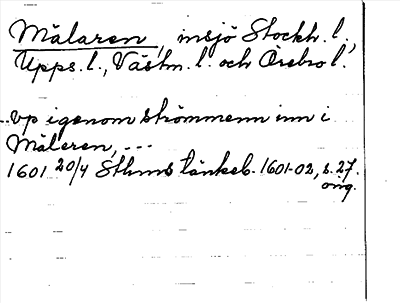 Mälaren, insjö Stockh. l.,
Upps. l., Västm. l. och Örebro l.
..vp igenom strömmenn inn i
Mäleren, ...
1601 20/4 Sthms tänkeb. 1601-02, s. 27.
orig.